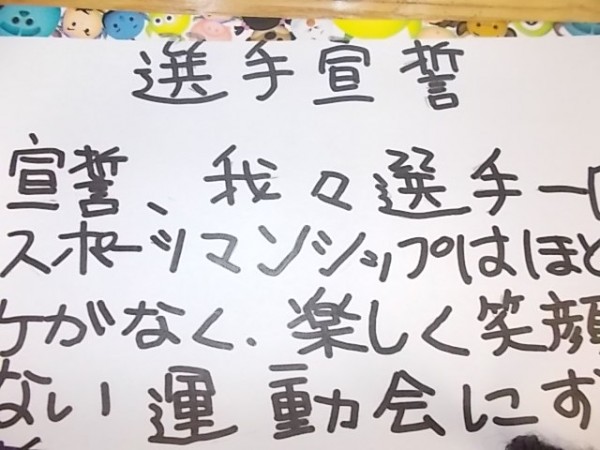 選手宣誓
宣誓、我々選手一
スポーツマンシップはほど
ケがなく、楽しく笑顔
ない運動会にす